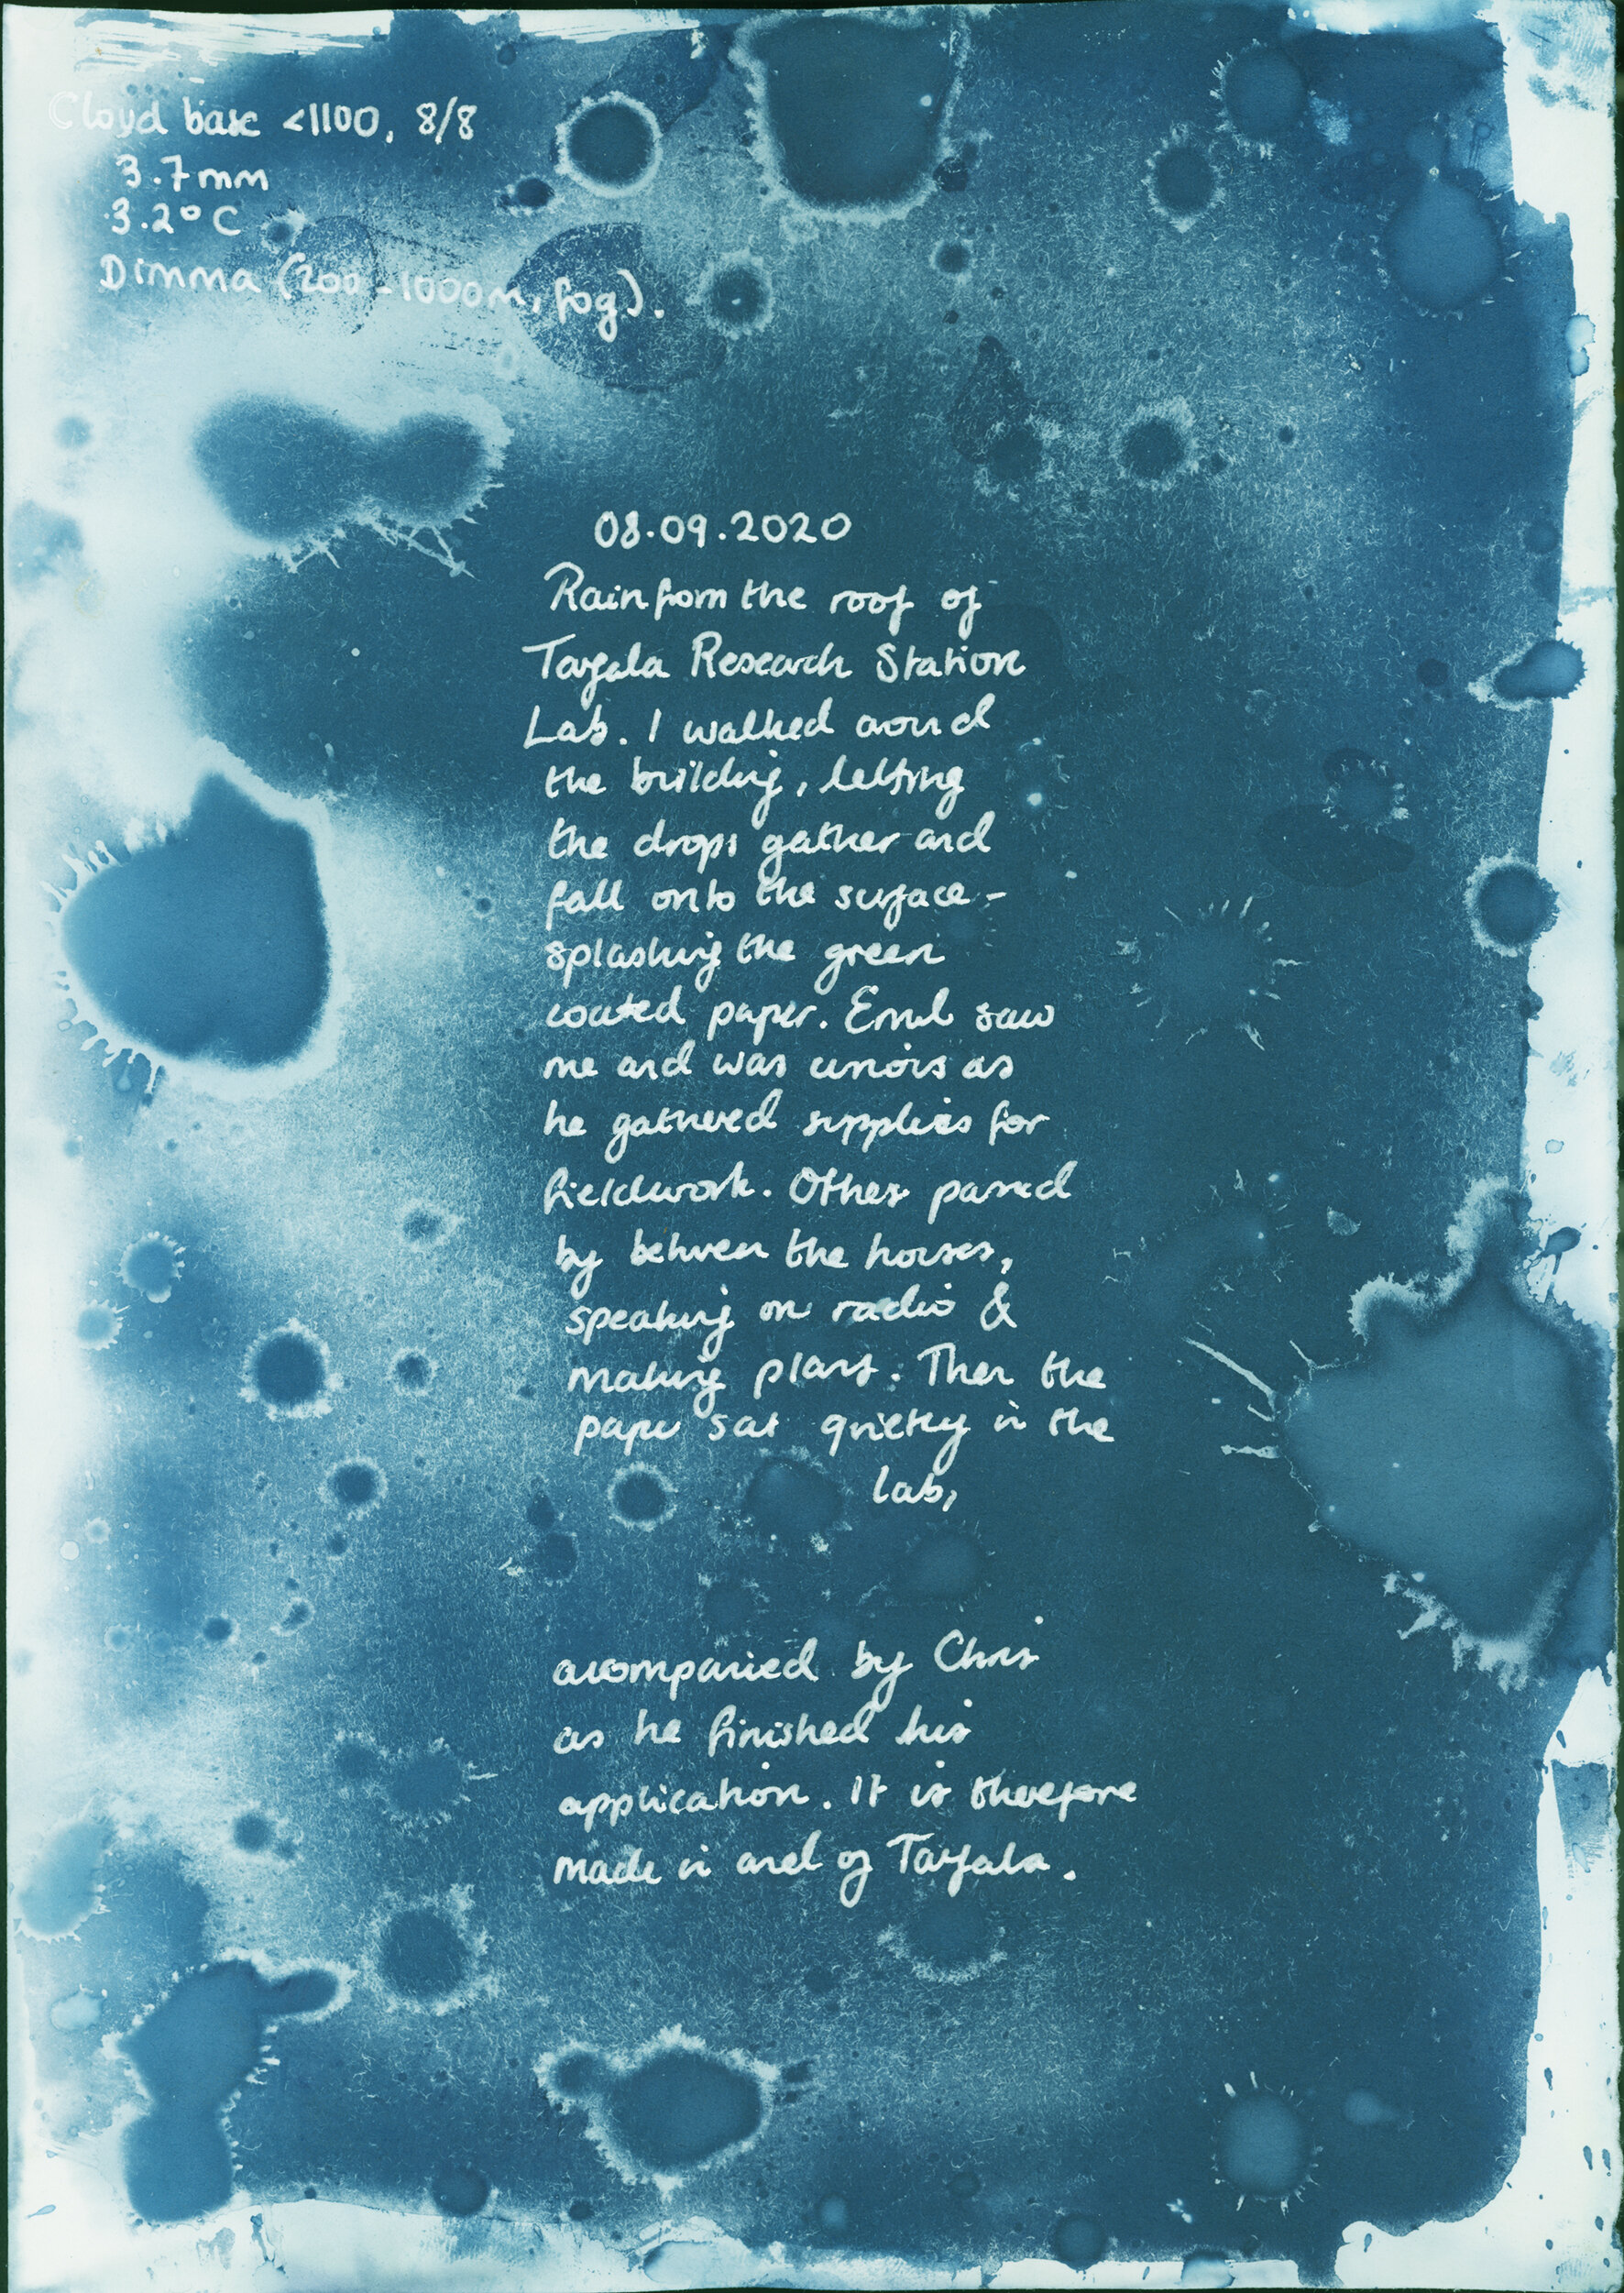 Cloud base <1100, 8/8
3.7mm
3.2°C
Dimma (200-1000m, fog).
08.09.2020
Rain from the roof of
Tarfala Research Station
Lab. I walked around
the building, letting
the drops gather and
fall onto the surface -
splashing the green
coated paper. Emil saw
me and was curious as
he gathered supplies for
fieldwork. Others passed
by between the houses,
speaking on radio &
making plans. Then the
paper sat quietly in the
lab,
accompanied by Chris
as he finished his
application. It is therefore
made in and of Tarfala.